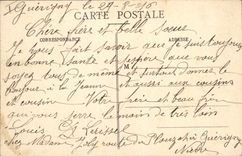 Guérigny le 29-8-1915
CARTE POSTALE
CORRESPONDANCE
ADRESSE
Chère frère et belle soeur
Je vous fait savoir que je suis toujours
en bonne santé et espère que vous
soyez tous de même et surtout donner le
bonjour à la Jeanne et aussi aux cousins
et cousine Votre frère et beau frère
qui vous serre la main de très loin
Louis
chez Madame route du
Guérigny
Nièvre